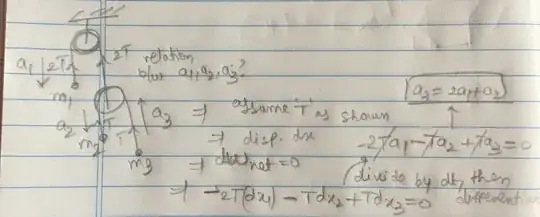 a₁ 2T 2T relation
b/w a₁, a₂, a₃?
m₁
a₂ T T a₃
m₂
m₃
⇒ assume 'T' as shown
⇒ disp. dx
⇒ net = 0
⇒ -2T(dx₁) - Tdx₂ + Tdx₃ = 0
a₃ = 2a₁ + a₂
-2Ta₁ - Ta₂ + Ta₃ = 0
divide by dt, then